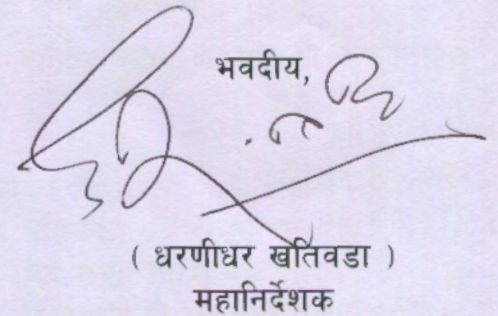 भवदीय,
( धरणीधर खतिवडा )
महानिर्देशक